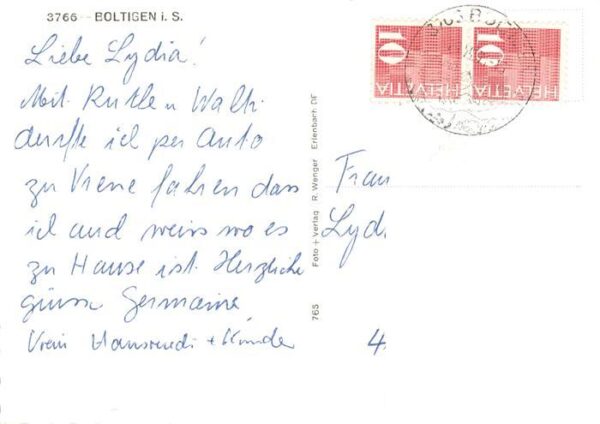 3766 - BOLTIGEN i. S.
Liebe Lydia!
Mit Ruthe u Walti
durfte ich per Auto
zu Vrene fahren dass
ich auch weiss wo es
zu Hause ist. Herzliche
grüsse Germaine
Vreni Hansruedi + Kinder
765 Foto + Verlag R. Wenger Erlenbach DE
10 HELVETIA
10 HELVETIA
Frau
Lyd.
4